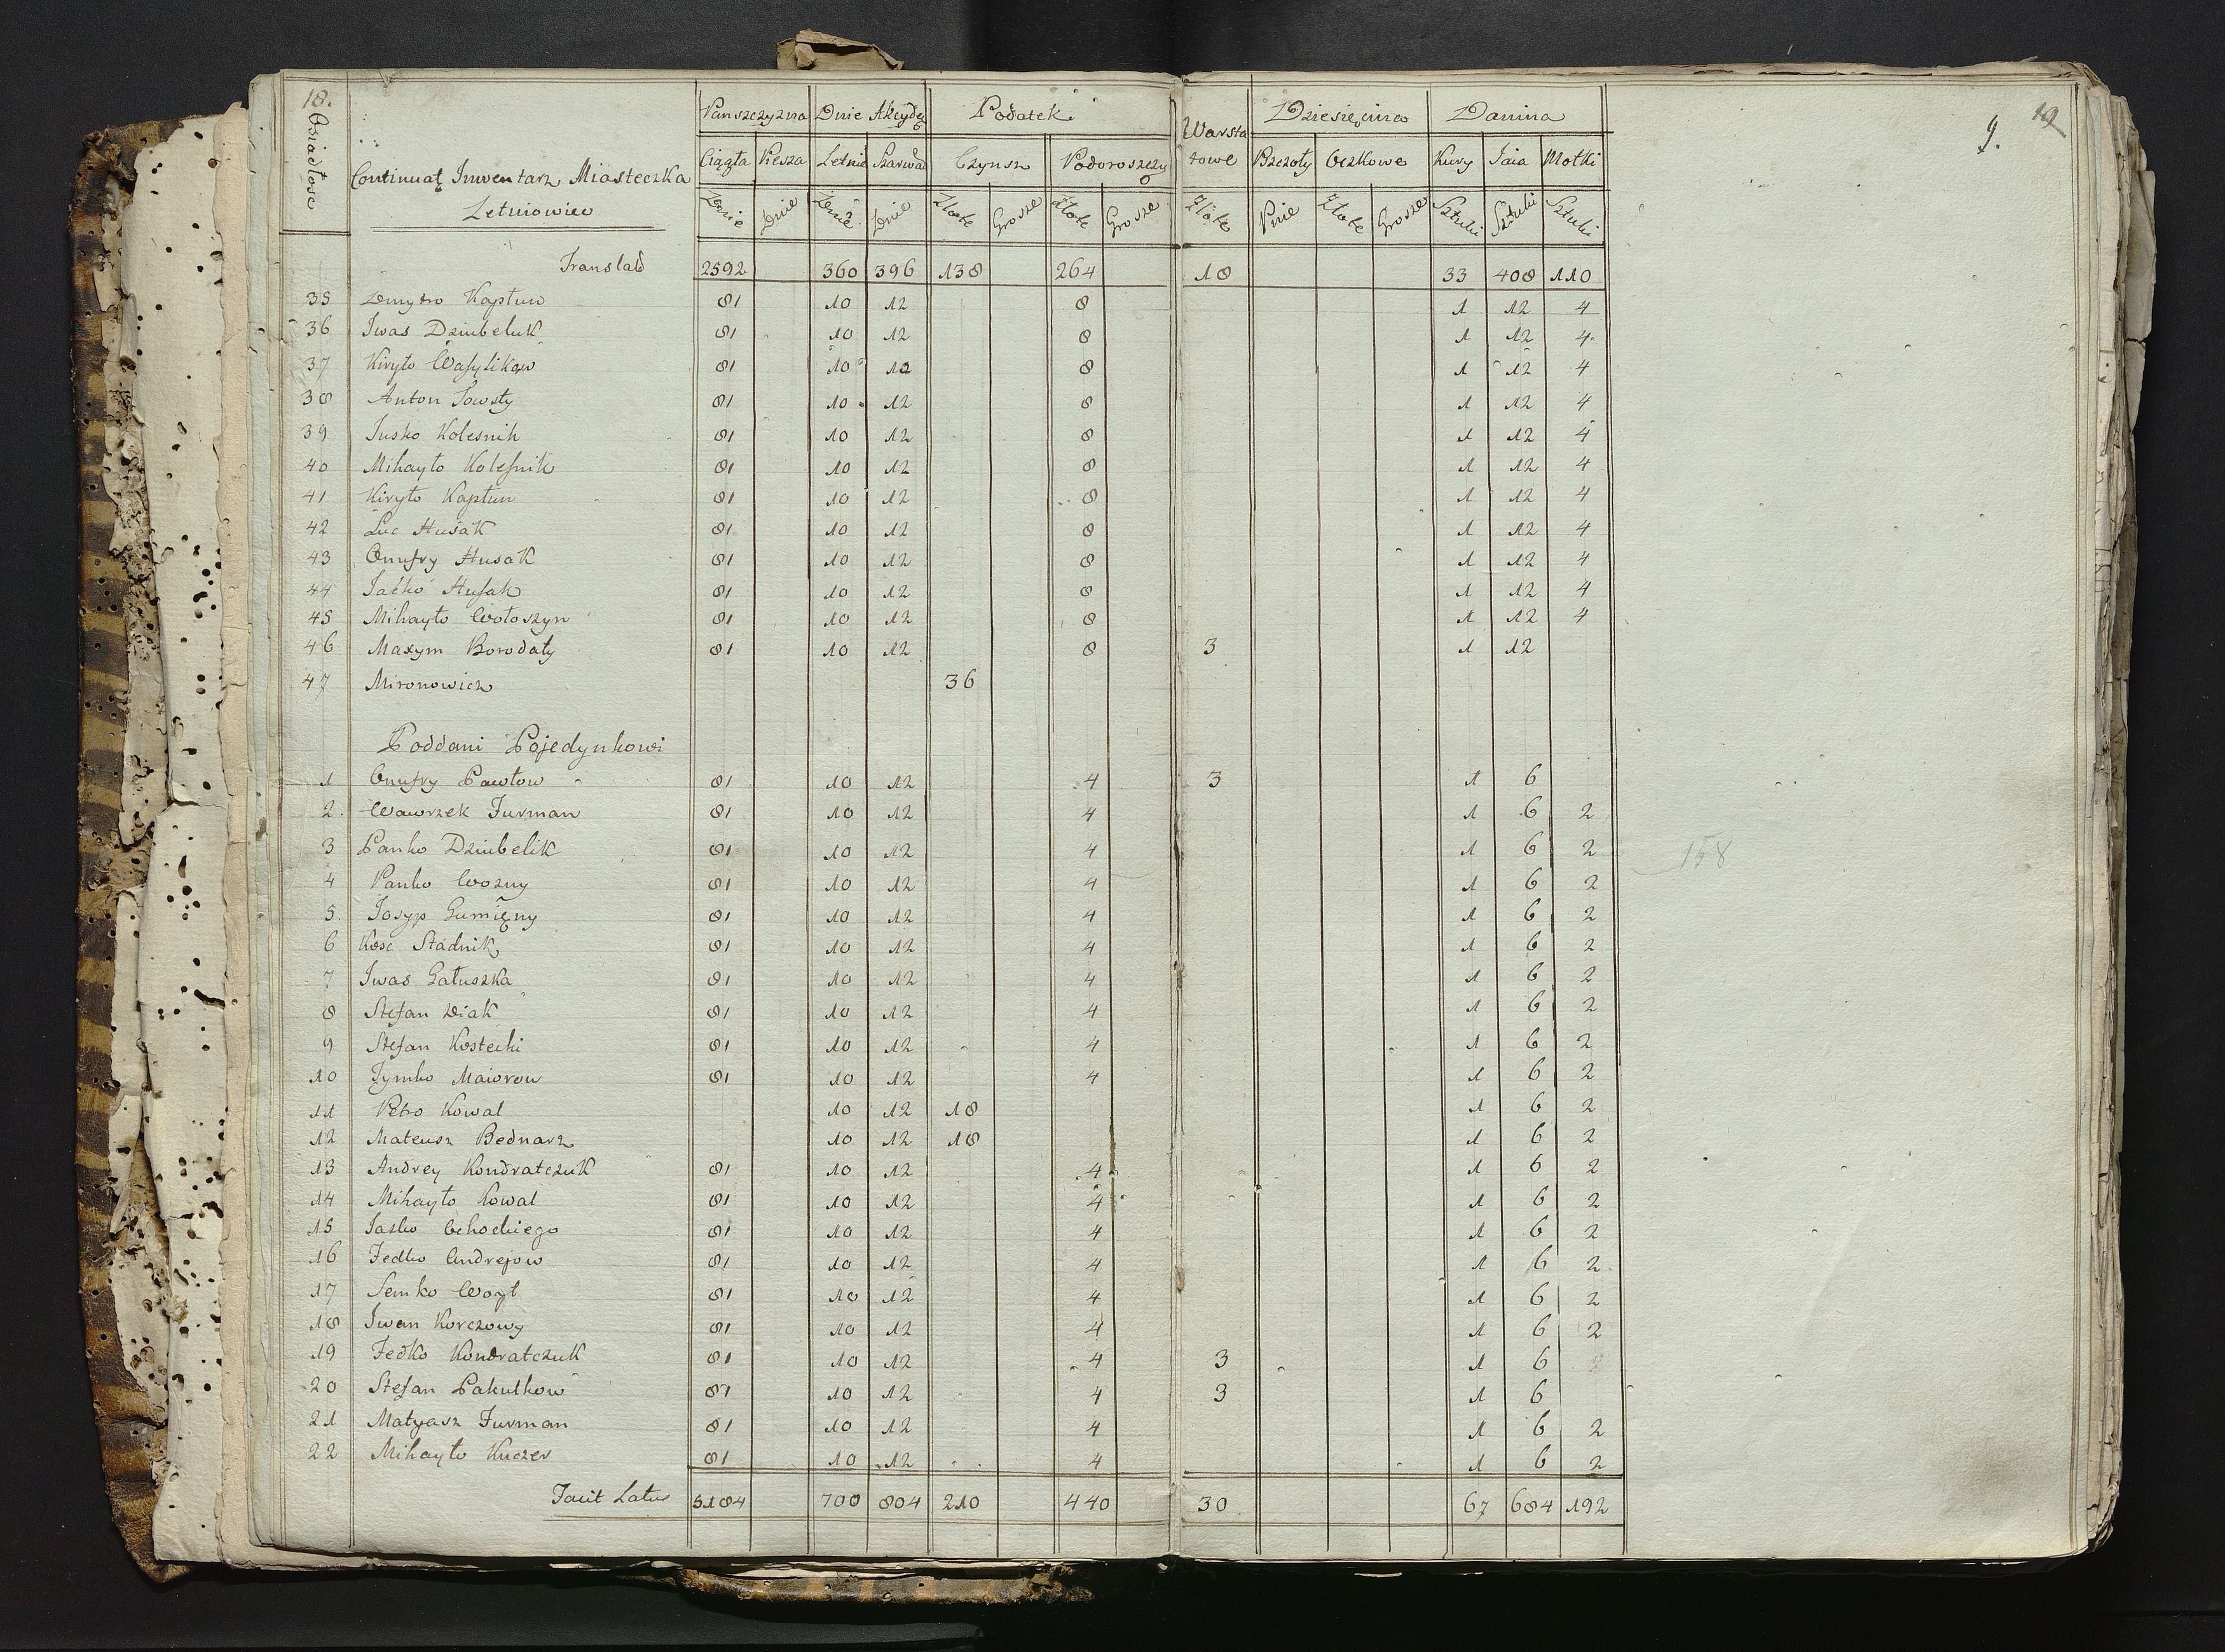 18. 19 9.
Osiadłosc Continuat Inwentarz Miasteczka Letniowiec
Panszczyzna Dnie Akcyden Podatek Warsta towe Dziesięcina Danina
Ciągła Piesza Letnie Szarwar Czynsz Podoroszczy Pszczoły Oczkowe Kury Jaia Motki
Dnie Dnie Dnie Dnie Złote Grosze Złote Grosze Złote Pnie Złote Grosze Sztuki Sztuki Sztuki
Translad 2592 360 396 138 264 18 33 408 110
35 Dmytro Kaptun 81 10 12 8 1 12 4
36 Iwas Dziubeluk 81 10 12 8 1 12 4
37 Kiryło Wasylikow 81 10 12 8 1 12 4
38 Anton Towsty 81 10 12 8 1 12 4
39 Jusko Kolesnik 81 10 12 8 1 12 4
40 Mihayło Kolesnik 81 10 12 8 1 12 4
41 Kiryło Kaptun 81 10 12 8 1 12 4
42 Luc Husak 81 10 12 8 1 12 4
43 Onufry Husak 81 10 12 8 1 12 4
44 Jacko Husak 81 10 12 8 1 12 4
45 Mihayło Wołoszyn 81 10 12 8 1 12 4
46 Maxym Borodaty 81 10 12 8 3 1 12
47 Mironowicz 36
Poddani Pojedynkowi
1 Onufry Pawłow 81 10 12 4 3 1 6
2. Wawrzek Furman 81 10 12 4 1 6 2
3 Panko Dziubelik 81 10 12 4 1 6 2 158
4 Panko Wozny 81 10 12 4 1 6 2
5. Josyp Gumięny 81 10 12 4 1 6 2
6 Kosc Stadnik 81 10 12 4 1 6 2
7 Iwas Gałuszka 81 10 12 4 1 6 2
8 Stefan Diak 81 10 12 4 1 6 2
9 Stefan Kostecki 81 10 12 4 1 6 2
10 Tymko Maiorow 81 10 12 4 1 6 2
11 Petro Kowal 10 12 18 1 6 2
12 Mateusz Bednarz 10 12 18 1 6 2
13 Andrey Kondratczuk 81 10 12 4 1 6 2
14 Mihayło Kowal 81 10 12 4 1 6 2
15 Jasko Ochockiego 81 10 12 4 1 6 2
16 Fedko Andrejow 81 10 12 4 1 6 2
17 Semko Woyt 81 10 12 4 1 6 2
18 Iwan Korczowy 81 10 12 4 1 6 2
19 Fedko Kondratczuk 81 10 12 4 3 1 6
20 Stefan Pakulkow 81 10 12 4 3 1 6
21 Matyasz Furman 81 10 12 4 1 6 2
22 Mihayło Kuczer 81 10 12 4 1 6 2
Facit Latus 5184 700 804 210 440 30 67 684 192